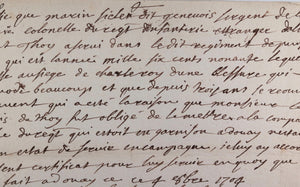 que maxin dit genevois sergent de
colonelle du regt d'infanterie etrangere de
Thoy a servi dans le dit regiment depuis
qui est l'année mille six cents nonante
au siege de charleroy d'une blessure qui
mode beaucoup et que depuis trois ans se
vent qui a este la raison que monsieur
de thoy fut obligé de le mettre a la compa
du regt qui estoit en garnison a douay
estat de servir en campagne, je luy ay accor
sent certificat pour luy servir en quoy que
fait a douay ce 4 8bre 1704